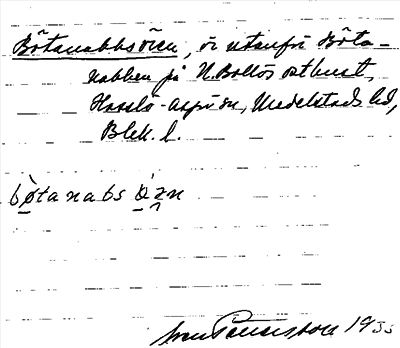 Bötanabbsören, ö utanför Böta-
nabben på N. Bollös ostkust,
Hasslö-Aspö sn, Medelstads hd,
Blek. l.
bøtanabs
1933